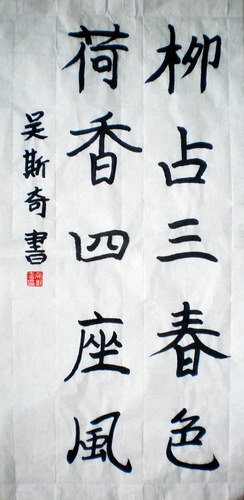 柳占三春色
荷香四座風
吴斯奇書